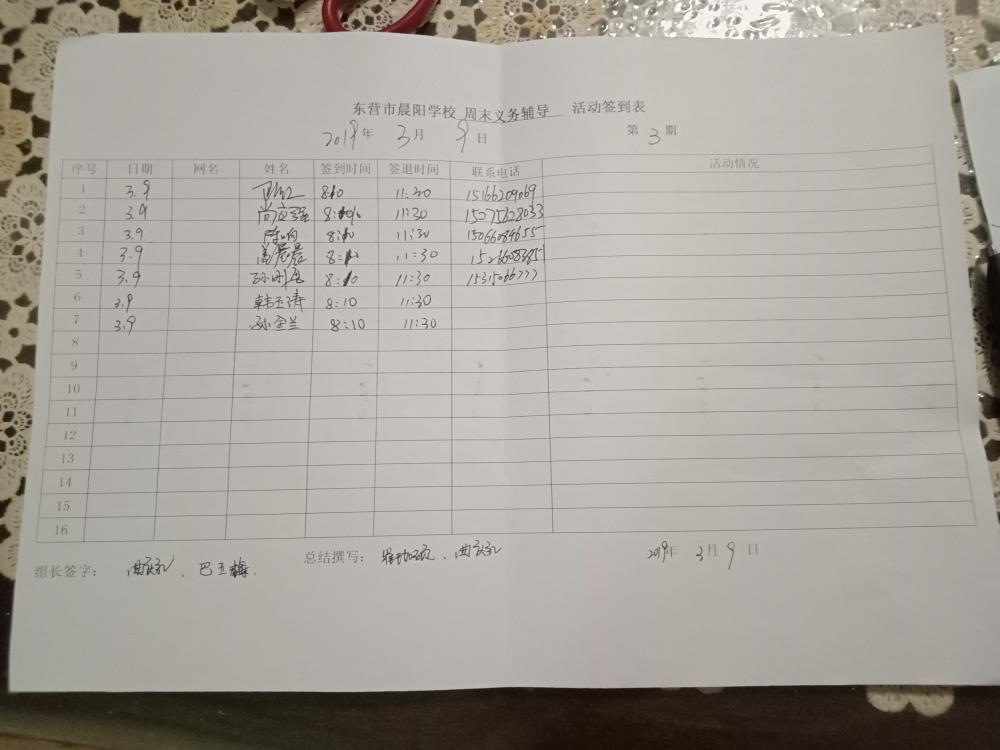 东营市晨阳学校 周末义务辅导 活动签到表
2019年 3月 9日 第3期
序号 日期 网名 姓名 签到时间 签退时间 联系电话 活动情况
1 3.9 11:30 15166209069
2 3.9 尚应强 11:30 15275628033
3 3.9 陈响 11:30
4 3.9 高晨晨 11:30
5 3.9 11:30 15315066777
6 3.9 韩玉清 8:10 11:30
7 3.9 孙金兰 8:10 11:30
8
9
10
11
12
13
14
15
16
组长签字: 、巴玉梅.
总结撰写:
2019年 3月9日